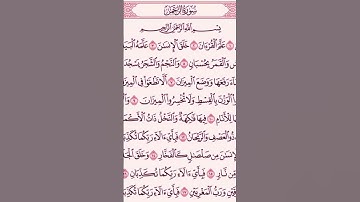 سُورَةُ الرَّحْمَٰن
بِسْمِ اللَّهِ الرَّحْمَٰنِ الرَّحِيمِ
عَلَّمَ الْقُرْءَانَ ۝ خَلَقَ الْإِنسَٰنَ ۝ عَلَّمَهُ الْبَيَا
وَالْقَمَرُ بِحُسْبَانٍ ۝ وَالنَّجْمُ وَالشَّجَرُ يَسْجُدَ
رَفَعَهَا وَوَضَعَ الْمِيزَانَ ۝ أَلَّا تَطْغَوْا فِي الْ
الْوَزْنَ بِالْقِسْطِ وَلَا تُخْسِرُوا الْمِيزَانَ ۝ وَا
لِلْأَنَامِ ۝ فِيهَا فَٰكِهَةٌ وَالنَّخْلُ ذَاتُ الْأَكْمَا
الْعَصْفِ وَالرَّيْحَانُ ۝ فَبِأَيِّ ءَالَاءِ رَبِّكُمَا تُكَ
الْإِنسَٰنَ مِن صَلْصَٰلٍ كَالْفَخَّارِ ۝ وَخَلَقَ الْجَا
مِّن نَّارٍ ۝ فَبِأَيِّ ءَالَاءِ رَبِّكُمَا تُكَذِّبَانِ ۝
رَقَيْنِ وَرَبُّ الْمَغْرِبَيْنِ ۝ فَبِأَيِّ ءَالَاءِ رَبِّكُمَا تُكَذِّبَا